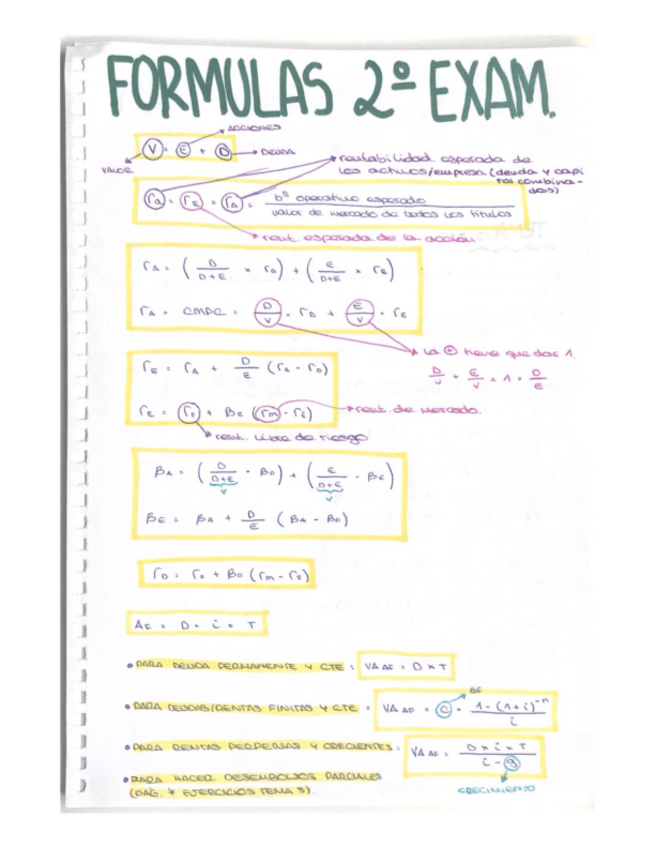 FORMULAS 2º EXAM.
ACCIONES
V = E + D → DEUDA
VALOR
rentabilidad esperada de
los activos/empresa (deuda y capi
tal combina-
dos)
ra = rE = rA = bº operativo esperado / valor de mercado de todos los títulos
rent. esperada de la acción
rA = (D/D+E × rD) + (E/D+E × rE)
rA = CMPC = D/V · rD + E/V · rE
La ⊕ tiene que dar 1.
D/V + E/V = 1 = D/E
rE = rA + D/E (rA - rD)
rE = rf + BE (rm - rf) → rent. de mercado.
rent. libre de riesgo
BA = (D/D+E · BD) + (E/D+E · BE)
V V
BE = BA + D/E (BA - BD)
rD = rf + BD (rm - rf)
AF = D · i · T
• PARA DEUDA PERMANENTE Y CTE: VA AF = D × T
AF
• PARA DEUDAS/RENTAS FINITAS Y CTE = VA AF = C · 1-(1+i)^-n / i
• PARA RENTAS PERPETUAS Y CRECIENTES: VA AF = D × i × T / i - g
• PARA HACER DESEMBOLSOS PARCIALES
(PÁG. 4 EJERCICIOS TEMA 5).
CRECIMIENTO